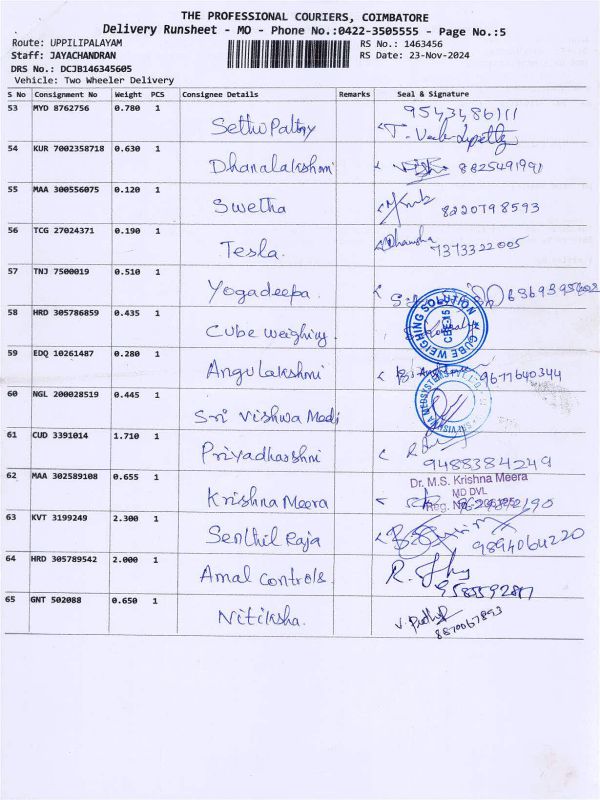 THE PROFESSIONAL COURIERS, COIMBATORE
Delivery Runsheet - MO - Phone No.:0422-3505555 - Page No.:5
Route: UPPILIPALAYAM
RS No.: 1463456
Staff: JAYACHANDRAN
RS Date: 23-Nov-2024
DRS No.: DCJB146345605
Vehicle: Two Wheeler Delivery
S No Consignment No Weight PCS Consignee Details Remarks Seal & Signature
53 MYD 8762756 0.780 1
54 KUR 7002358718 0.630 1 Dhanalakshmi 8825491991
55 MAA 300556075 0.120 1 Swetha 8220798593
56 TCG 27024371 0.190 1 Tesla. Dhansha 7373322005
57 TNJ 7500019 0.510 1 Yogadeepa.
58 HRD 305786859 0.435 1 Cube weighing. CUBE WEIGHING SOLUTION CBE-15
59 EDQ 10261487 0.280 1 Angulakshmi 9677640344
60 NGL 200028519 0.445 1 Sri Vishwa
61 CUD 3391014 1.710 1 Priyadharshni 9488384249
62 MAA 302589108 0.655 1 Krishna Meera Dr. M.S. Krishna Meera
MD DVL
Reg. No.
63 KVT 3199249 2.300 1 Senthil Raja 9894064220
64 HRD 305789542 2.000 1 Amal controls 9585592817
65 GNT 502088 0.650 1 Nitiksha. 8870067893